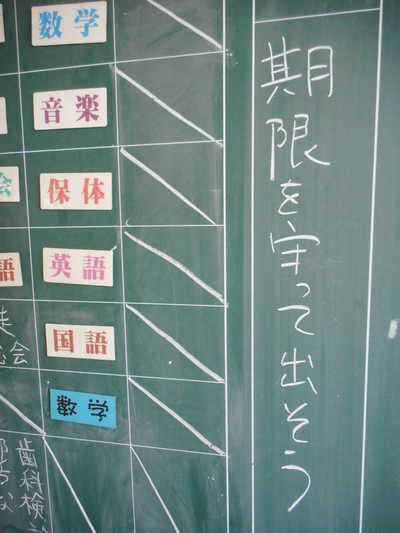 期限を守って出そう
数学
音楽
保体
英語
国語
数学
会
語
会
歯科検